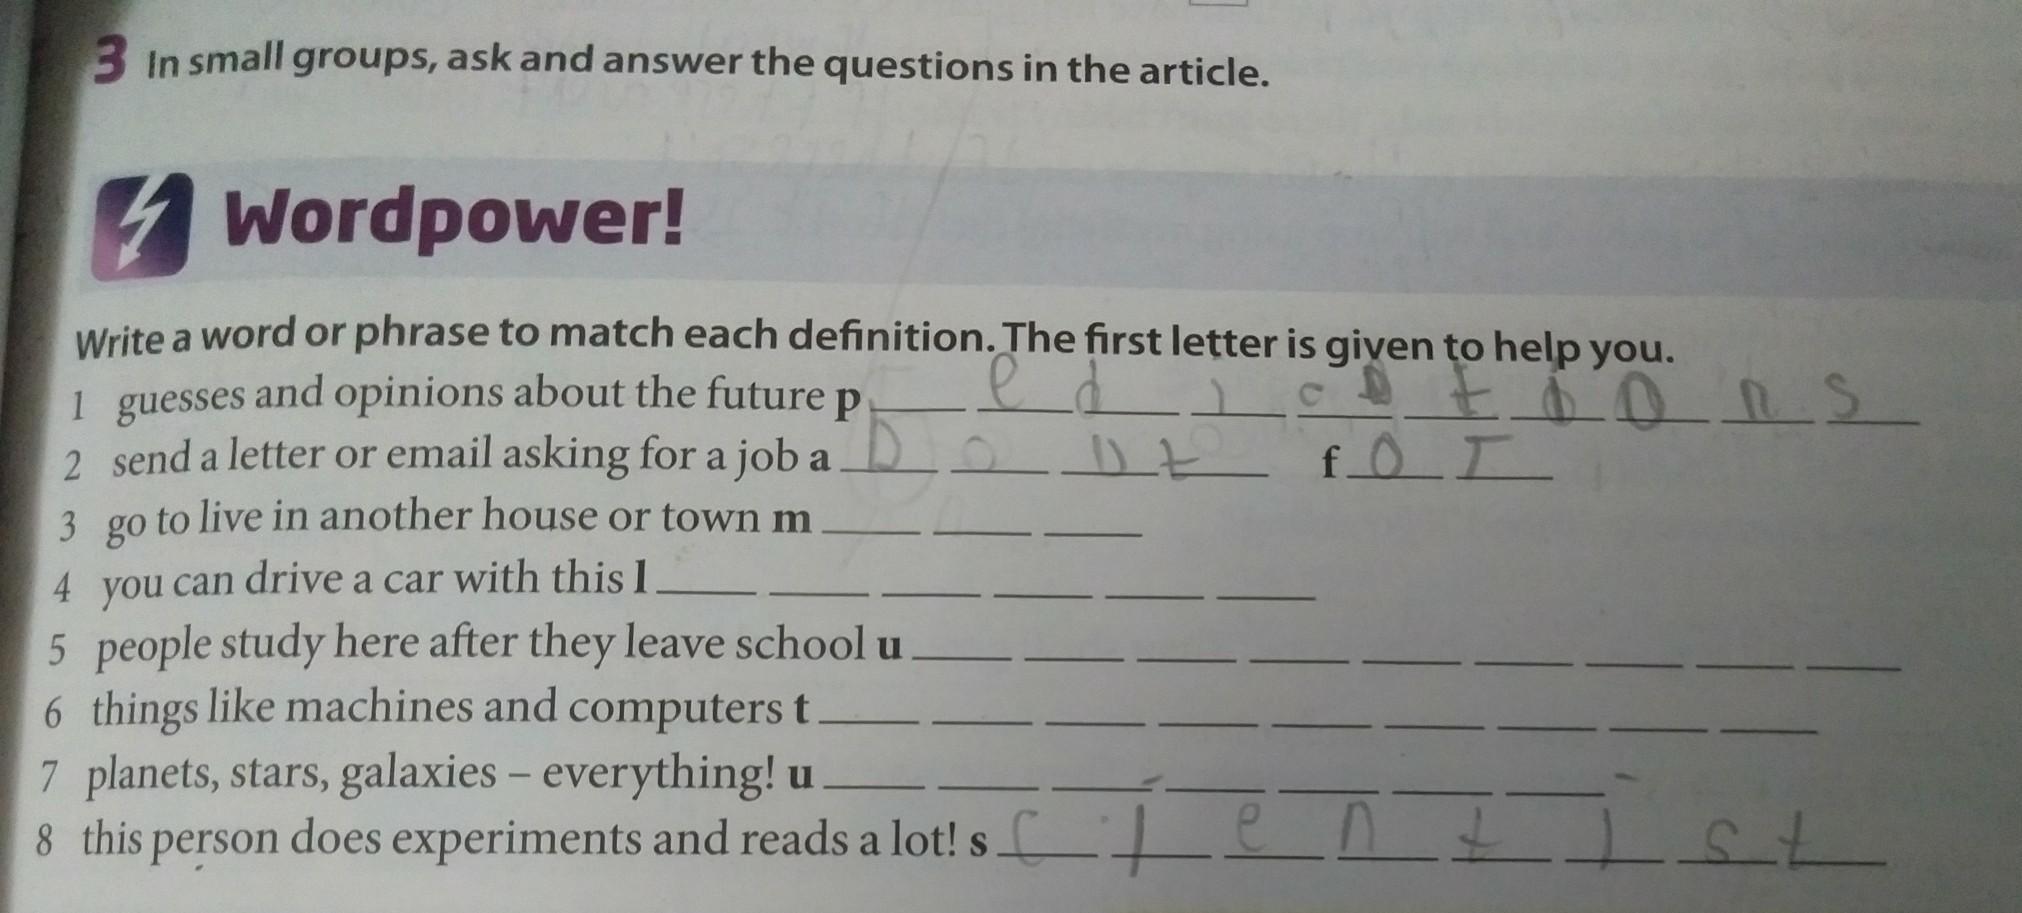 3 In small groups, ask and answer the questions in the article.
Wordpower!
Write a word or phrase to match each definition. The first letter is given to help you.
1 guesses and opinions about the future p_ e d i c t i o n s
2 send a letter or email asking for a job a ____ f o r
3 go to live in another house or town m ___
4 you can drive a car with this l ______
5 people study here after they leave school u _________
6 things like machines and computers t _________
7 planets, stars, galaxies – everything! u _______
8 this person does experiments and reads a lot! s c i e n t i s t